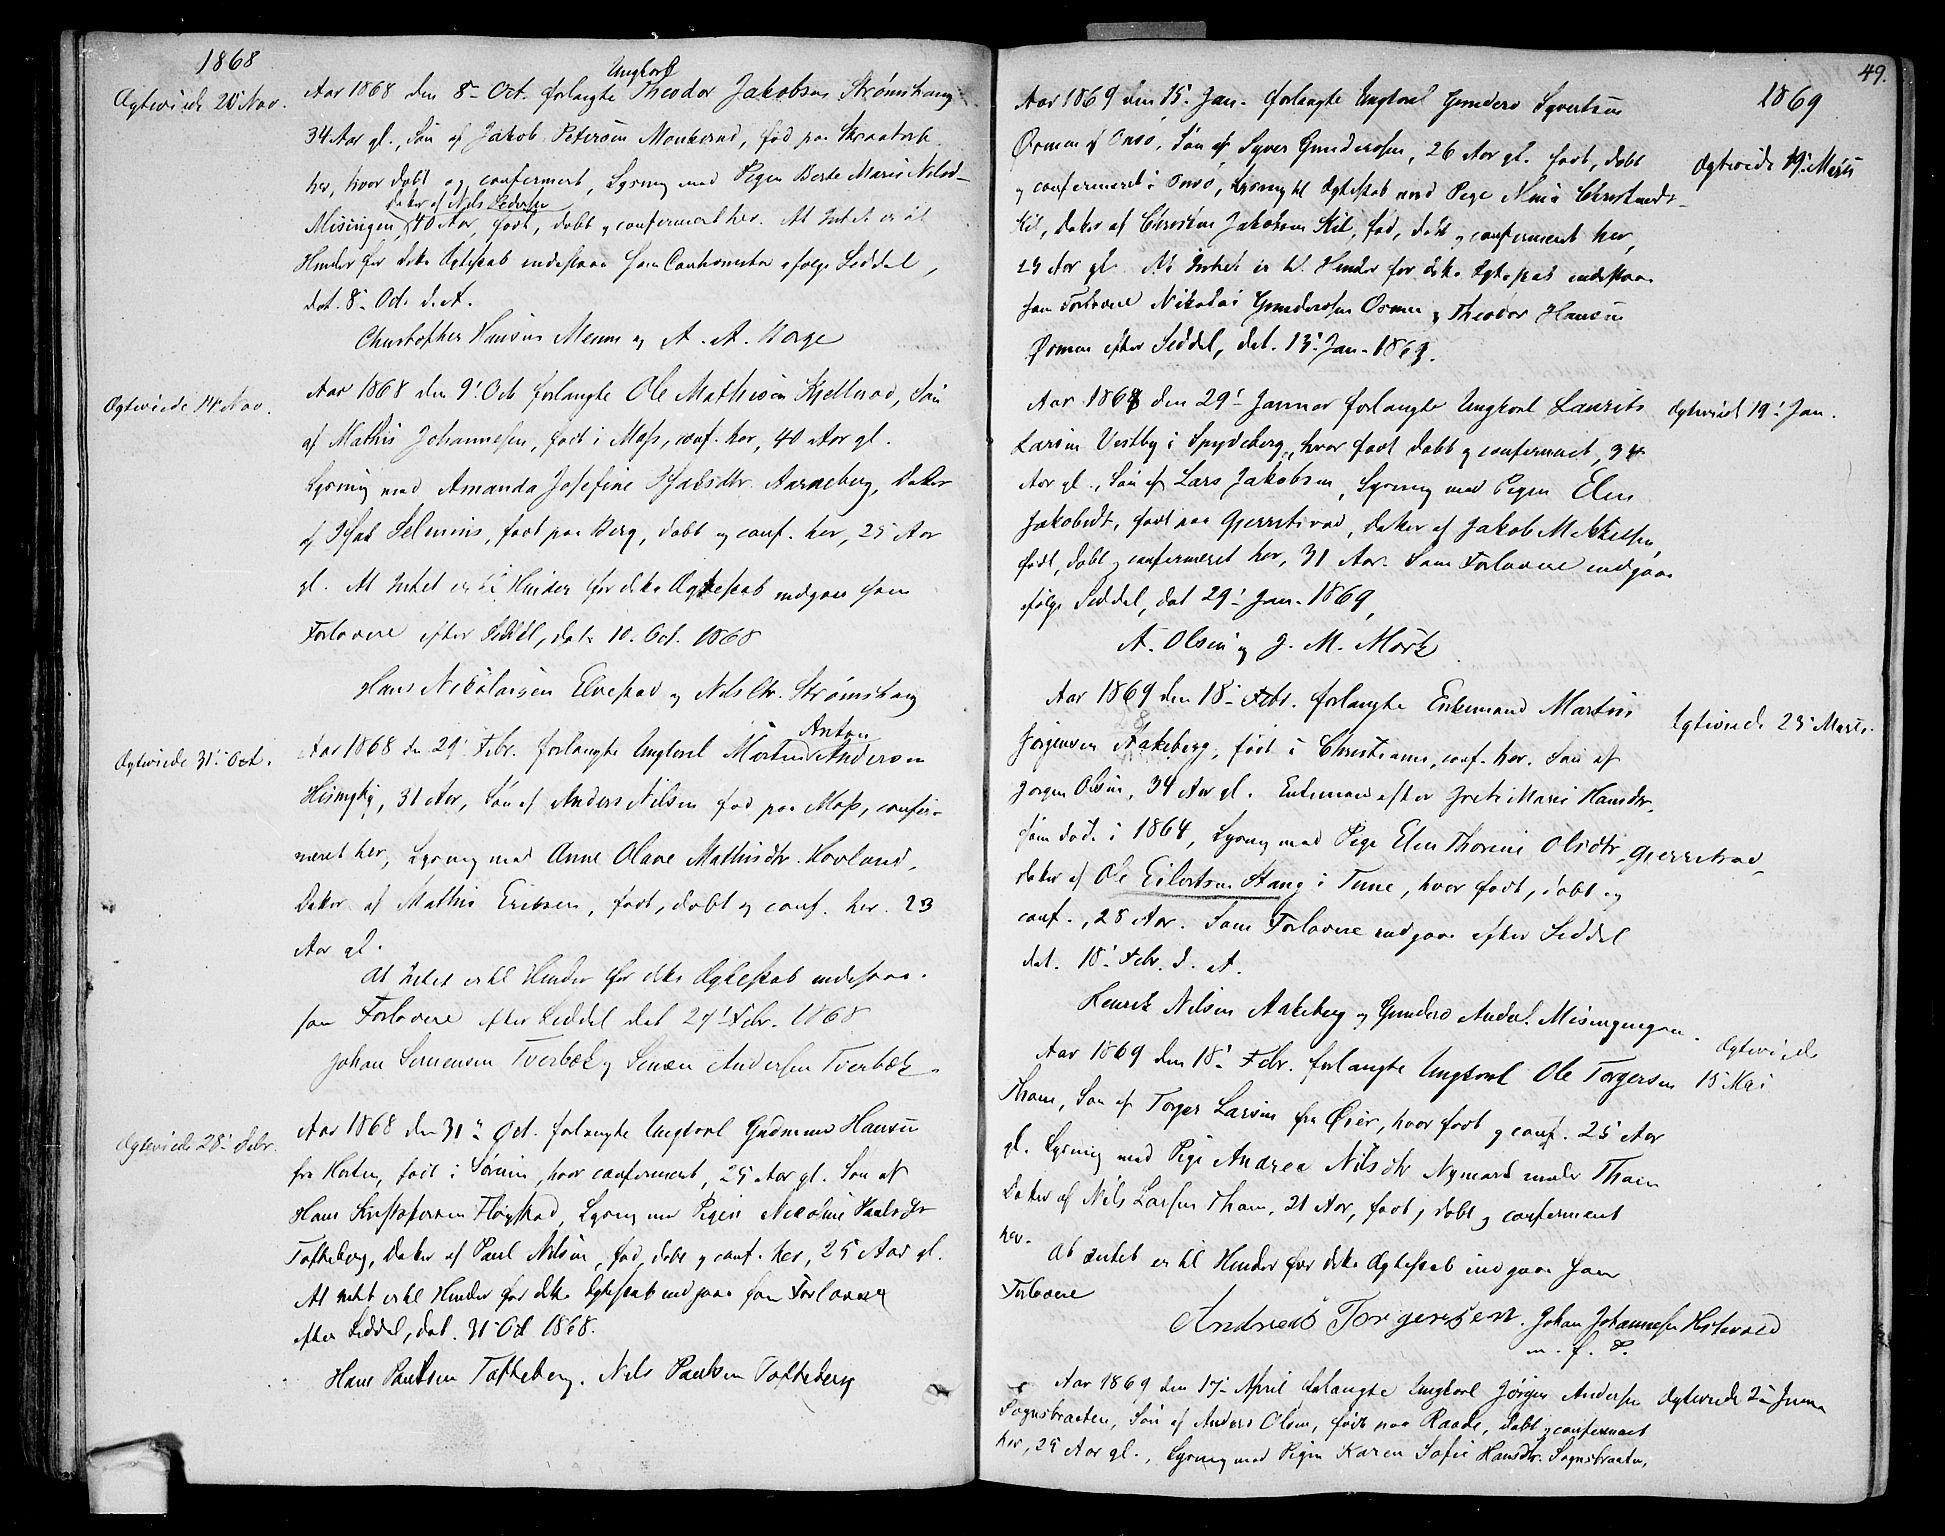 1868
Ægteviede 20 Nov.
Ungkarl
Aar 1868 den 8- Oct. forlangte Theodor Jakobsen Strømshaug
34 Aar gl., Søn af Jakob Petersen Monkerud, fød paa
her, hvor døbt og confermert, Lysning med Pigen Berte Marie Nilsd-
Datter af Nils Pedersen
Missingen, 40 Aar, født, døbt og confermeret her. At Intet er til
Hinder for dette Ægteskab indestaar som Cautionister ifølge Seddel,
dat. 8- Oct. d. A.
Christopher Hansen Menn og A. A. Borge
Ægteviede 14 Nov.
Aar 1868 den 9' Oct forlangte Ole Mathisen Kjellerød, Søn
af Mathis Johannesen, født i Moss, conf. her, 40 Aar gl.
Lysning med Amanda Josefine Isaksdtr. Aarneberg, Datter
af Isak Selmius, født paa Berg, døbt og conf. her, 25 Aar
gl. At Intet er til Hinder for dette Ægteskab indgaar som
Forlovere efter Seddel, dat. 10. Oct. 1868
Hans Nikolaisen Elvestad og Nils Chr. Strømshaug
Ægteviede 31' Oct.
Anton
Aar 1868 den 29' Febr. forlangte Ungkarl Martin Andersen
31 Aar, Søn af Anders Nilsen fød paa Moss, confir-
meret her, Lysning med Anne Olave Mathisdtr. Hovland,
Datter af Mathis Eriksen, født, døbt og conf. her. 23
Aar gl.
At Intet er til Hinder for dette Ægteskab indestaar
som Forlovere efter Seddel dat 29' Febr. 1868
Johan Sørensen Tverbæk og Simen Andersen Tverbæk.
Ægteviede 28' Febr.
Aar 1868 den 31' Oct. forlangte Ungkarl Gudmund Hansen
fra Horten, født i hvor confermert, 25 Aar gl. Søn af
Hans Kristofersen Fløgstad, Lysning med Pigen Nicoline Paulsdtr
Tofteberg, Datter af Paul Nilsen, fød, døbt og conf. her, 25 Aar gl.
At intet er til Hinder for dette Ægteskab indgaar som Forlovere
efter Seddel, dat. 31' Oct 1868.
Hans Paulsen Tofteberg. Nils Paulsen Tofteberg
49.
1869
Aar 1869 den 15' Jan. forlangte Ungkarl Gunders Syvertsen
Ørmen af Onsø, Søn af Syver Gundersen, 26 Aar gl. født, døbt
og confermeret i Onsø, Lysning til Ægteskab med Pige Nina Christensdt-
Kil, Datter af Christen Jakobsen Kil, fød, døbt og confermeret her,
23 Aar gl. At Intet er til Hinder for dette Ægteskab indestaar
som Forlovere Nikolai Gundersen Ørmen og Theodor Hansen
Ørmen efter Seddel, dat. 13' Jan. 1869.
Ægteviede 19' Marts
Aar 1869 den 29' Januar forlangte Ungkarl Laurits
Larsen Vestby i Spydeberg, hvor født døbt og confermeret, 34
Aar gl., Søn af Lars Jakobsen, Lysning med Pigen Elen
Jakobsdt, født paa Gjerretsrød, Datter af Jakob Mikkelsen,
født, døbt og confermeret her, 31 Aar. Som Forlovere indgaar
ifølge Seddel, dat 29' Jan. 1869,
A. Olsen og J. M. Mørk
Ægteviede 19' Jan.
Aar 1869 den 18- Febr. forlangte Enkemand Martin
Jørgensen Aakeberg, født i Christiania, conf. her. Søn af
Jørgen Olsen, 34 Aar gl. Enkemand efter Grete Marie Hansdtr,
som døde i 1864, Lysning med Pige Elen Thorine Olsdtr, Gjerretsrød,
Datter af Ole Eilertsen Stang i Tune, hvor født, døbt og
conf., 28 Aar. Som Forlovere indgaar efter Seddel
dat. 18' Febr. d. A.
Henrik Nilsen Aakeberg og Gunders Anders.
Ægteviede 23' Marts.
Aar 1869 den 18' Febr. forlangte Ungkarl Ole Torgersen
Thom, Søn af Torger Larsen fra Øier, hvor født og conf. 25 Aar
gl. Lysning med Pige Andrea Nilsdtr Nymark under Thom
Datter af Nils Larsen Thom, 21 Aar, født, døbt og confermeret
her.
At Intet er til Hinder for dette Ægteskab indgaar som
Forlovere
Andreas Torgersen. Johan Johannesen
m. f. P.
Ægteviede
15 Mai
Aar 1869 den 17' April forlangte Ungkarl Jørgen Andersen
Sognsbraaten, Søn af Anders Olsen, født paa Raade, døbt og confermeret
her, 25 Aar gl., Lysning med Pigen Karen Sofie Hansdtr. Sognsbraaten,
Ægteviede 2- Juni